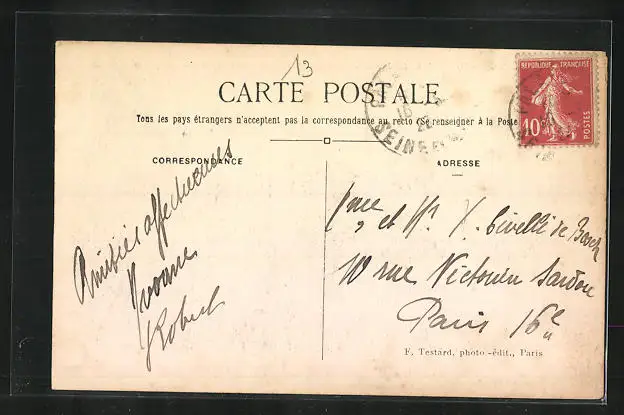 13
CARTE POSTALE
Tous les pays étrangers n'acceptent pas la correspondance au recto (Se renseigner à la Poste
CORRESPONDANCE
ADRESSE
RÉPUBLIQUE FRANÇAISE
10c
POSTES
SEINE
Amitiés affectueuses
Yvonne
Robert
Mme et Mr Civelli de Bosch
10 rue Victorien Sardou
Paris 16e
F. Testard, photo-édit., Paris